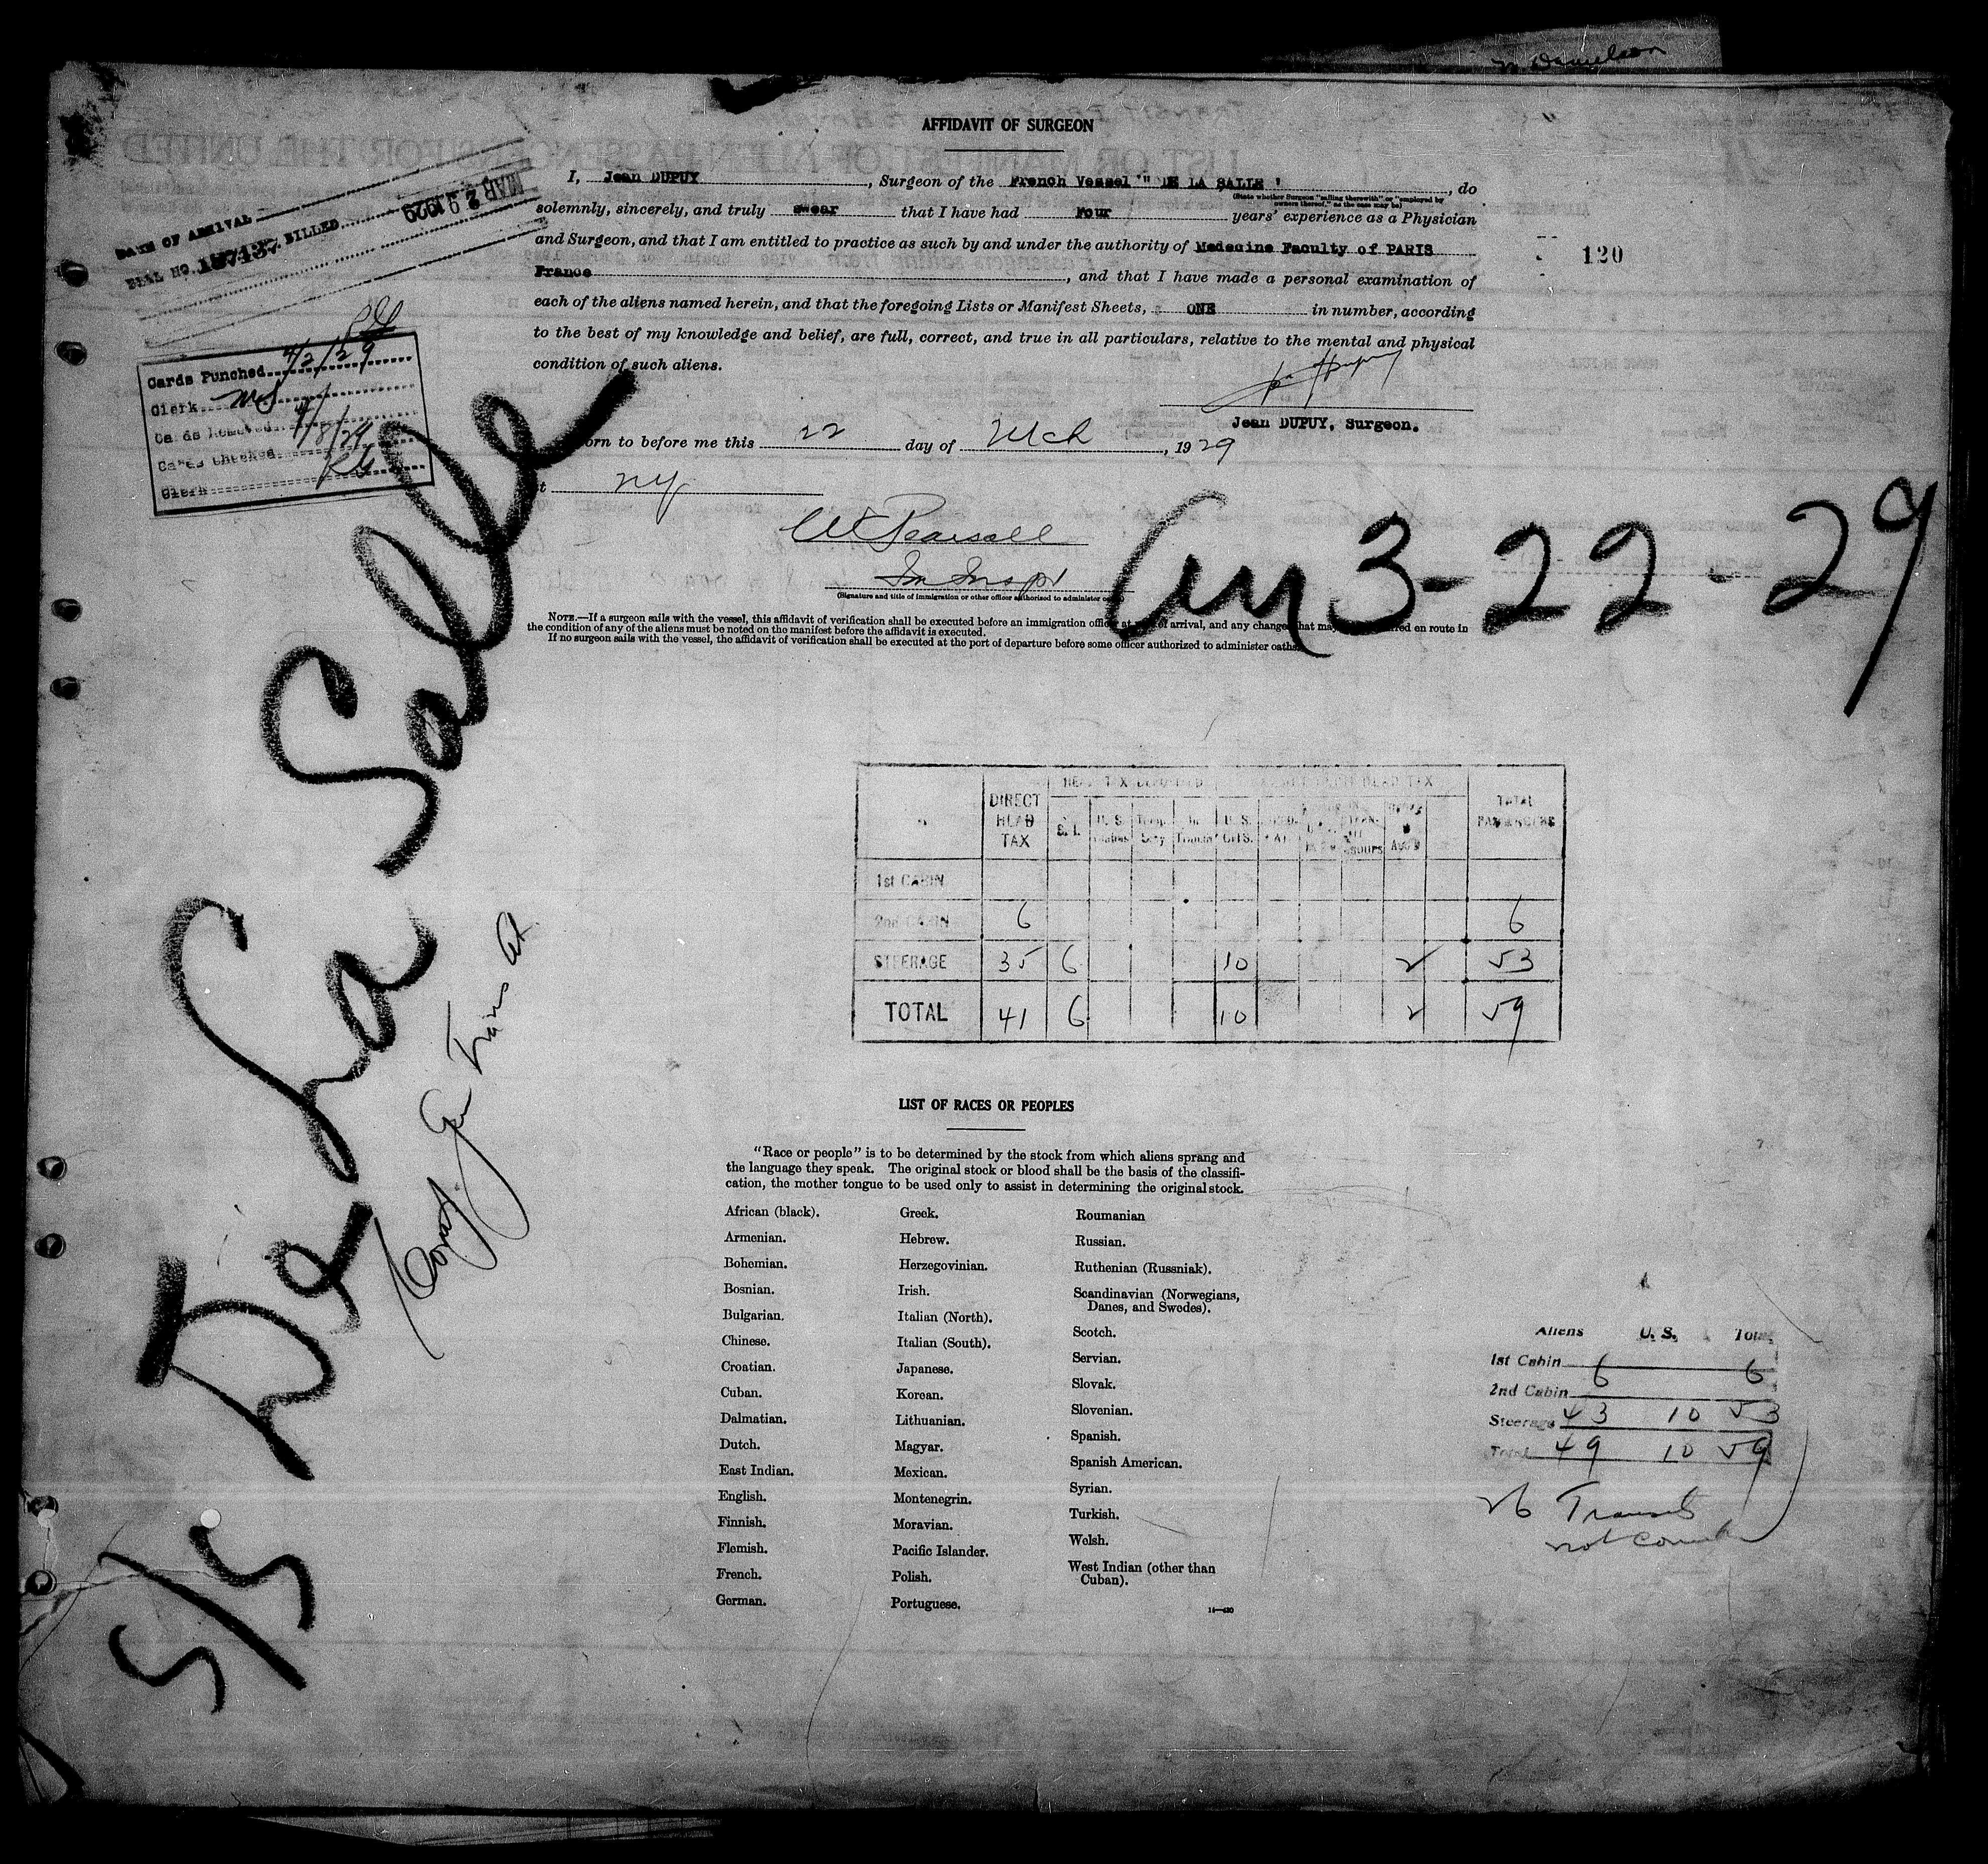 AFFIDAVIT OF SURGEON
I, Jean DUPUY, Surgeon of the French Vessel " DE LA SALLE ", do
(State whether Surgeon "sailing therewith" or "employed by owners thereof," as the case may be)
solemnly, sincerely, and truly swear that I have had Four years' experience as a Physician
and Surgeon, and that I am entitled to practice as such by and under the authority of Medecine Faculty of PARIS
France, and that I have made a personal examination of
each of the aliens named herein, and that the foregoing Lists or Manifest Sheets, ONE in number, according
to the best of my knowledge and belief, are full, correct, and true in all particulars, relative to the mental and physical
condition of such aliens.
Jean DUPUY, Surgeon.
orn to before me this 22 day of Mch, 1929
t NY
W Pearsall
Im Inspr
(Signature and title of immigration or other officer authorized to administer
NOTE.—If a surgeon sails with the vessel, this affidavit of verification shall be executed before an immigration officer at arrival, and any change that may en route in
the condition of any of the aliens must be noted on the manifest before the affidavit is executed.
If no surgeon sails with the vessel, the affidavit of verification shall be executed at the port of departure before some officer authorized to administer oaths.
DATE OF ARRIVAL
BILL NO. 187137 BILLED MAR 29 1929
Cards Punched 4/2/29
Clerk MS
Cards Removed
Cards Checked 4/8/29
Clerk
120
S/S De La Salle
Comp. Gen Trans At
Arr 3-22-29
DIRECT HEAD TAX
HEAD TAX
HEAD TAX
TOTAL PASSENGERS
S. I.
U. S.
U. S.
1st CABIN
2nd CABIN 6 6
STEERAGE 35 6 10 2 53
TOTAL 41 6 10 2 59
LIST OF RACES OR PEOPLES
"Race or people" is to be determined by the stock from which aliens sprang and
the language they speak. The original stock or blood shall be the basis of the classifi-
cation, the mother tongue to be used only to assist in determining the original stock.
African (black).
Armenian.
Bohemian.
Bosnian.
Bulgarian.
Chinese.
Croatian.
Cuban.
Dalmatian.
Dutch.
East Indian.
English.
Finnish.
Flemish.
French.
German.
Greek.
Hebrew.
Herzegovinian.
Irish.
Italian (North).
Italian (South).
Japanese.
Korean.
Lithuanian.
Magyar.
Mexican.
Montenegrin.
Moravian.
Pacific Islander.
Polish.
Portuguese.
Roumanian
Russian.
Ruthenian (Russniak).
Scandinavian (Norwegians,
Danes, and Swedes).
Scotch.
Servian.
Slovak.
Slovenian.
Spanish.
Spanish American.
Syrian.
Turkish.
Welsh.
West Indian (other than
Cuban).
Aliens U. S. Total
1st Cabin 6 6
2nd Cabin
Steerage 43 10 53
Total 49 10 59
26 Transits
not